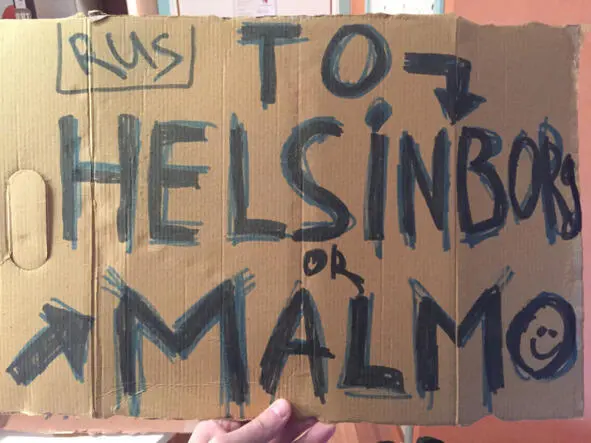 RUS
TO
HELSiNBORg
OR
MALMO